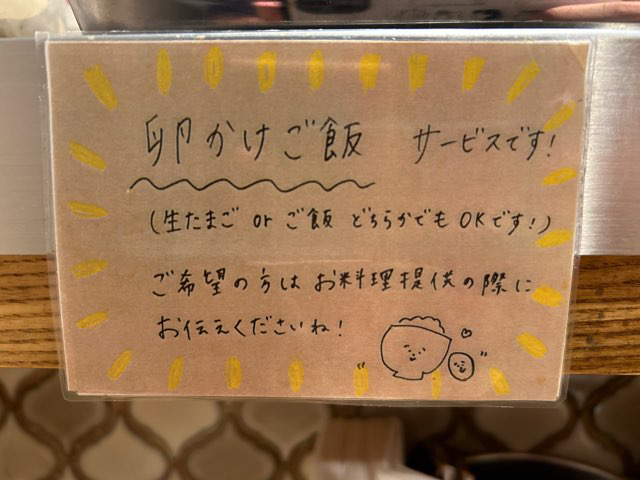 卵かけご飯 サービスです!
(生たまご or ご飯 どちらかでも OKです!)
ご希望の方は お料理提供の際に
お伝えくださいね!